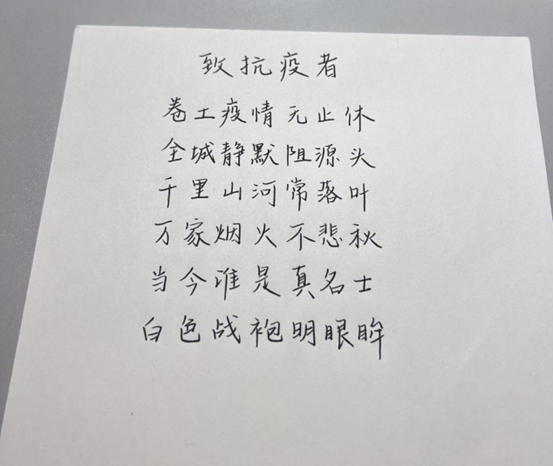 致抗疫者
卷土疫情无止休
全城静默阻源头
千里山河常落叶
万家烟火不悲秋
当今谁是真名士
白色战袍明眼眸